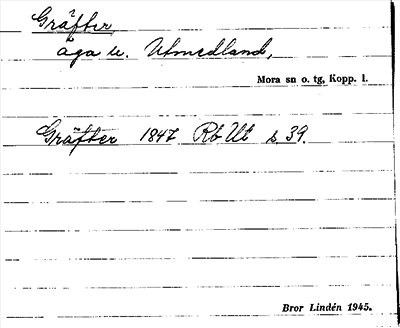 Gräfter
äga u. Utmedland,
Mora sn o. tg, Kopp. l.
Gräfter 1847 Rb Ut s 39.
Bror Lindén 1945.